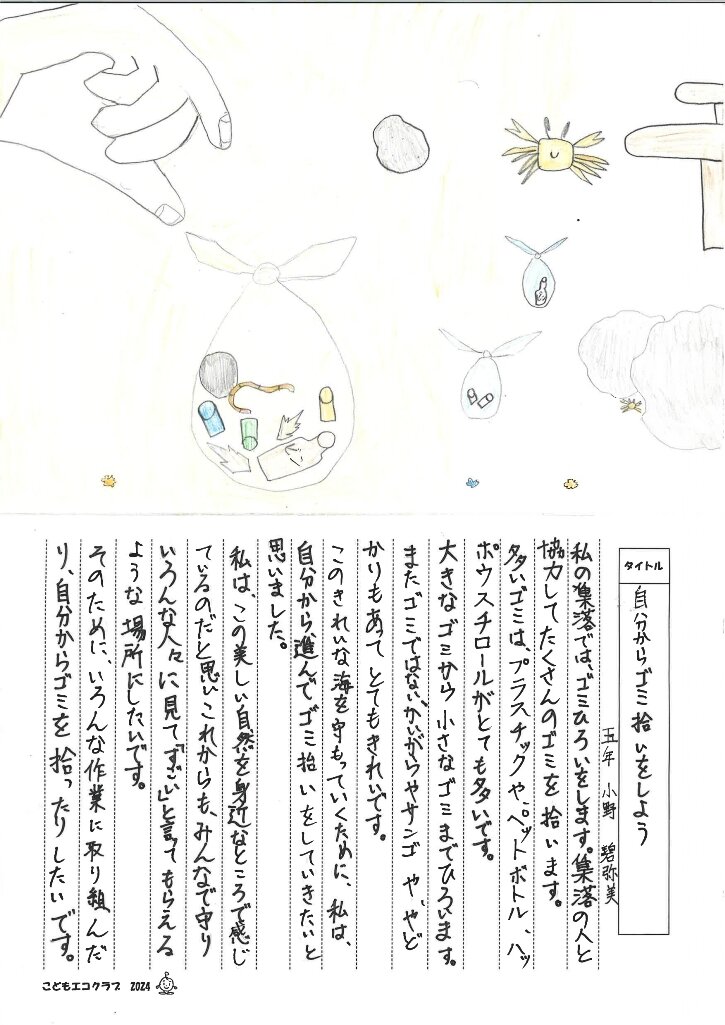 タイトル
自分からゴミ拾いをしよう
五年 小野 碧弥美
私の集落では、ゴミひろいをします。集落の人と
協力してたくさんのゴミを拾います。
多いゴミは、プラスチックや、ペットボトル、ハッ
ポウスチロールがとても多いです。
大きなゴミから小さなゴミまでひろいます。
またゴミではない、かいがらやサンゴや、やど
かりもあってとてもきれいです。
このきれいな海を守もっていくために、私は、
自分から、進んでゴミ拾いをしていきたいと
思いました。
私は、この美しい自然を身近なところで感じ
ているのだと思いこれからも、みんなで守り
いろんな人々に見て「すごい」と言ってもらえる
ような場所にしたいです。
そのために、いろんな作業に取り組んだ
り、自分からゴミを拾ったりしたいです。
こどもエコクラブ 2024